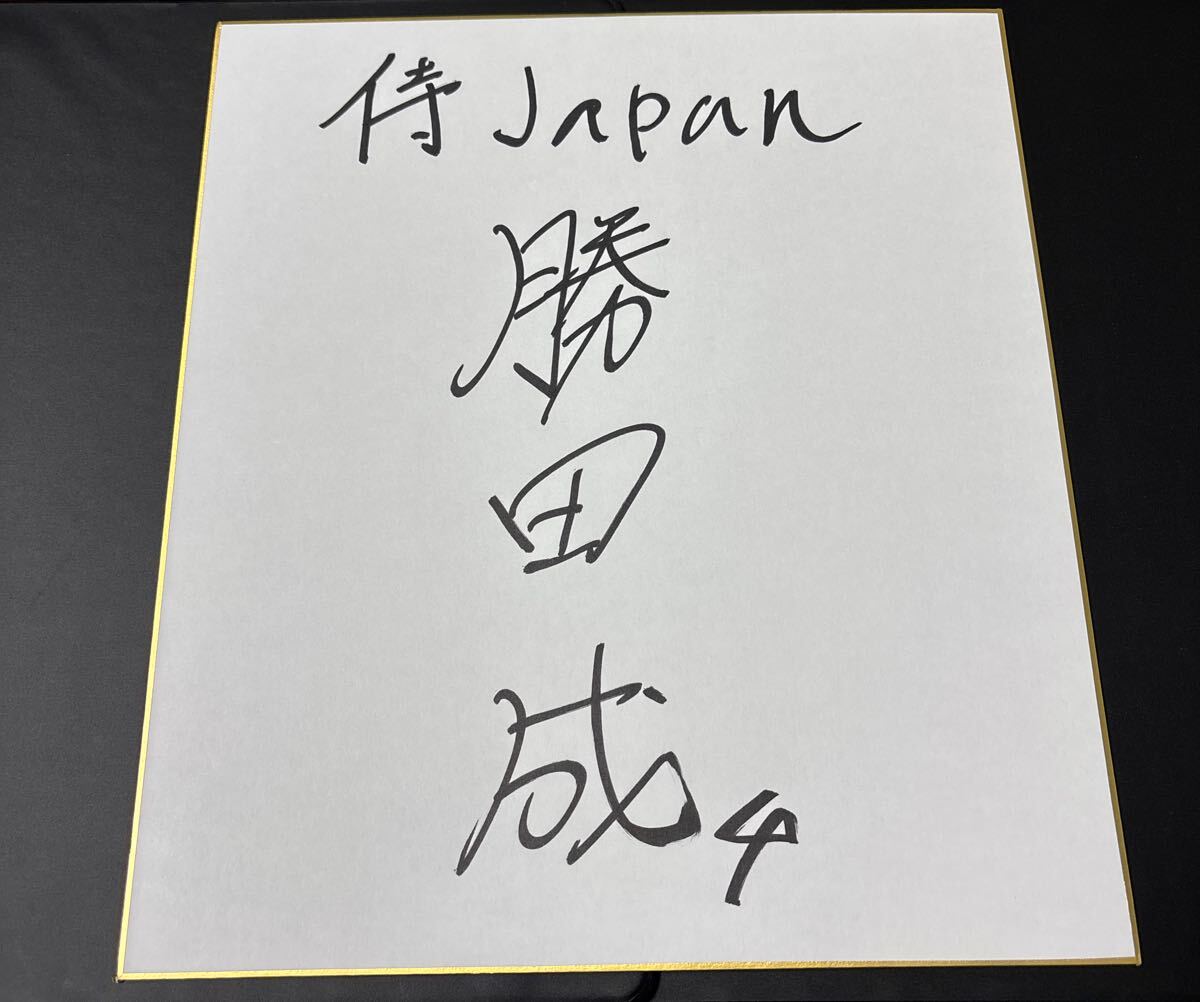 侍 Japan
勝田
成 4